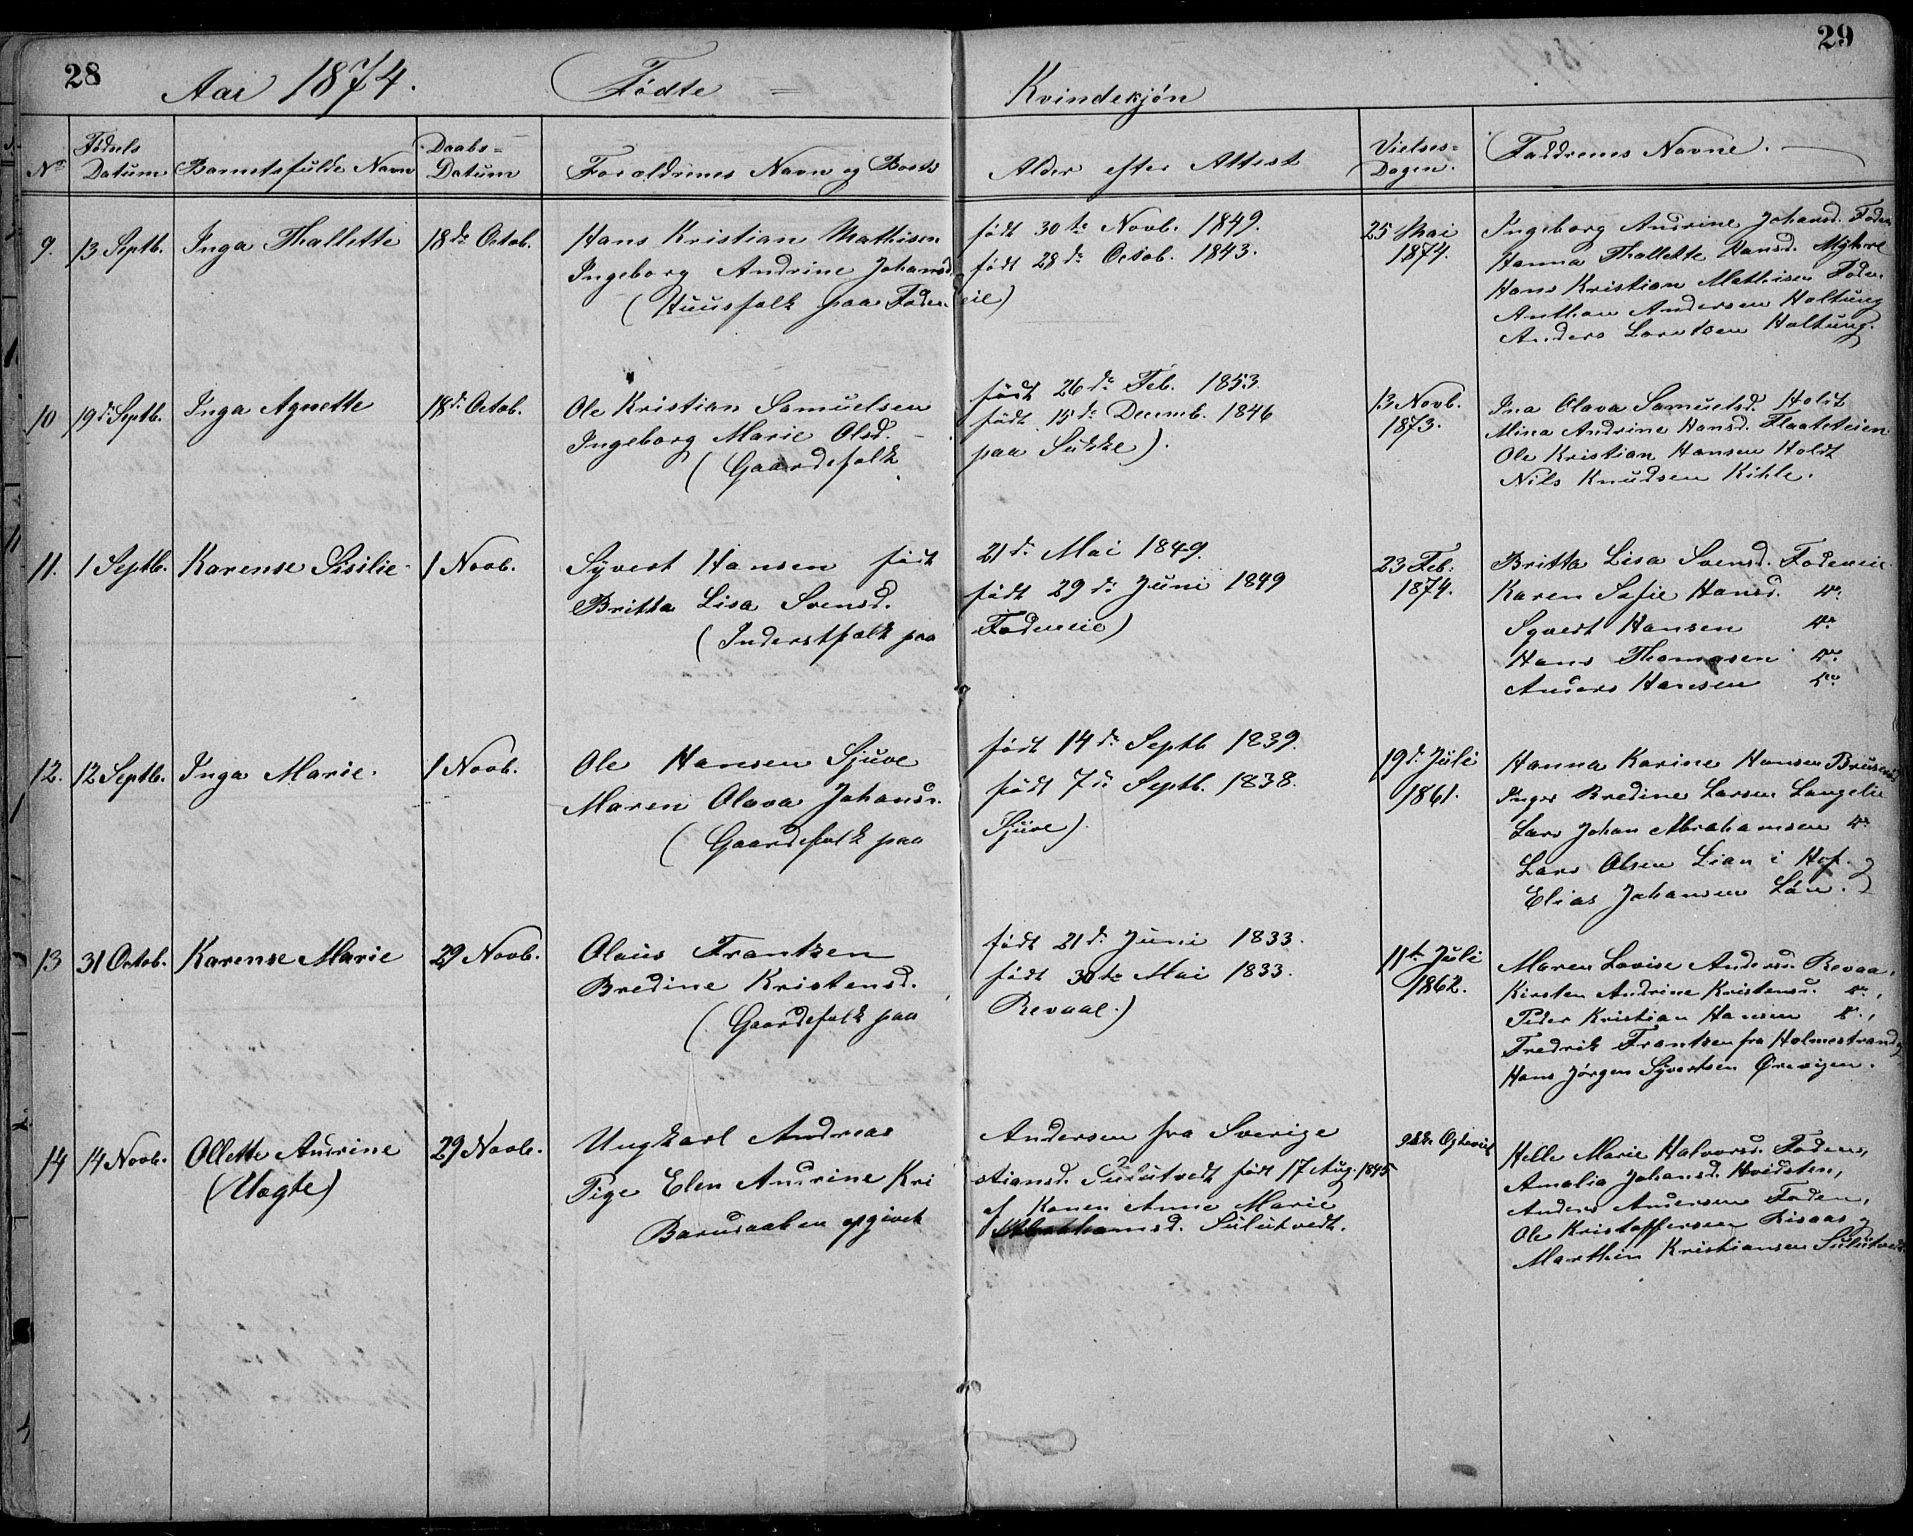 28
29
Aar 1874.
Fødte =
Kvindekjøn
No
Fødsels Datum
Barnets fulde Navn
Daabs= Datum
Foraldrenes Navn og Bosts
Alder efter Attest
Vielses= Dagen.
Faddrenes Navne.
9. 13 Septb. Inga Thallette 18de Octob.
Hans Kristian Mathisen født 30te Novb. 1849.
Ingeborg Andrine Johansd. født 28de Octob. 1843.
(Huusfolk paa Foden eie)
25 Mai
1874.
Ingeborg Andrine Johansd. Foden
Hanna Thallette Hansd. Myhre
Hans Kristian Mathisen Foden
Anthon Andersen Holtung
Anders Lorntsen Holtung.
10 19de Septb. Inga Agnette 18de Octob.
Ole Kristian Samuelsen født 26de Feb. 1853.
Ingeborg Marie Olsd. født 15de Decemb. 1846
(Gaardefolk paa Sukke).
13 Novb.
1873.
Ina Olava Samuelsd. Holdt
Mina Andrine Hansd. Flaateteien
Ole Kristian Hansen Holdt
Nils Knudsen Kihle.
11. 1 Septb. Karense Sisilie 1 Novb.
Syvert Hansen født 21de Mai 1849.
Britta Lisa Svensd. født 29de Juni 1849
(Inderstfolk paa Fodeneie)
23 Feb.
1874.
Britta Lisa Svensd. Fodeneie
Karen Sofie Hansd. do
Syvert Hansen do
Hans Thomasen do
Anders Hansen do
12. 12 Septb. Inga Marie. 1 Novb.
Ole Hansen Sjuve født 14de Septb 1839.
Maren Olava Johansd. født 7de Septb. 1838.
(Gaardefolk paa Sjuve).
19de Juli
1861.
Hanna Karine Hansen
Inger Bredine Larsen Langelie
Lars Johan Abrahamsen do
Lars Olsen Lian i Hof. og
Elias Johansen Løn.
13 31 Octob. Karense Marie 29 Novb.
Olaus Frantsen født 21de Juni 1833.
Bredine Kristensd. født 30te Mai 1833.
(Gaardefolk paa Revaal.)
11te Juli
1862.
Maren Lovise Andersd. Revaa,
Kirsten Andrine Kristensd. do,
Peder Kristian Hansen do,
Fredrik Frantsen fra Holmestrand og
Hans Jørgen Syvertsen Ørevigen.
14 14 Novb. Ollette Andrine 29 Novb.
(Uægte)
Ungkarl Andreas Andersen fra Sverige
Pige Elen Andrine Kristiansd. Sulutvedt født 17 Aug. 1845
Barndaaben opgivet af Konen Anne Marie
Abrahamsd. Sulutvedt.
ikke
Helle Marie Halvorsd. Foden,
Amalia Johansd. Hvidsten,
Anders Andersen Foden,
Ole Kristoffersen Lisaas og
Marthin Kristiansen Sulutvedt